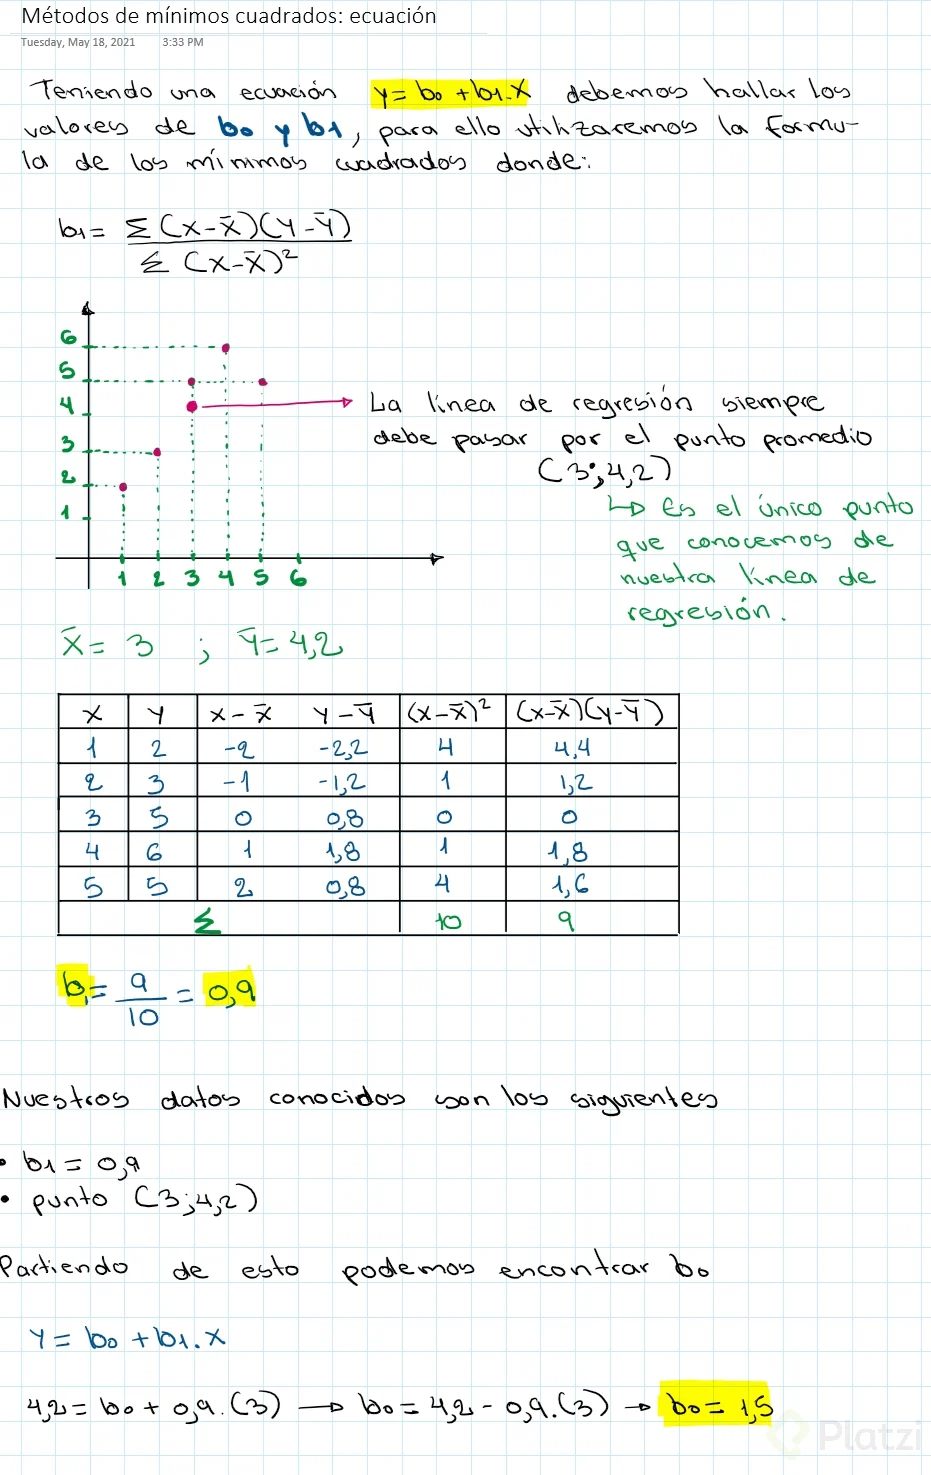 Métodos de mínimos cuadrados: ecuación
Tuesday, May 18, 2021 3:33 PM
Teniendo una ecuación y = b0 + b1.X debemos hallar los
valores de b0 y b1, para ello utilizaremos la formu-
la de los mínimos cuadrados donde:
b1 = Σ (X-X̄)(Y-Ȳ)
Σ (X-X̄)²
6
5
4
3
2
1
1 2 3 4 5 6
La línea de regresión siempre
debe pasar por el punto promedio
(3;4,2)
↳ Es el único punto
que conocemos de
nuestra línea de
regresión.
X̄ = 3 ; Ȳ = 4,2
X Y X-X̄ Y-Ȳ (X-X̄)² (X-X̄)(Y-Ȳ)
1 2 -2 -2,2 4 4,4
2 3 -1 -1,2 1 1,2
3 5 0 0,8 0 0
4 6 1 1,8 1 1,8
5 5 2 0,8 4 1,6
Σ 10 9
b1 = 9/10 = 0,9
Nuestros datos conocidos son los siguientes
• b1 = 0,9
• punto (3;4,2)
Partiendo de esto podemos encontrar b0
Y = b0 + b1.X
4,2 = b0 + 0,9.(3) → b0 = 4,2 - 0,9.(3) → b0 = 1,5
Platzi